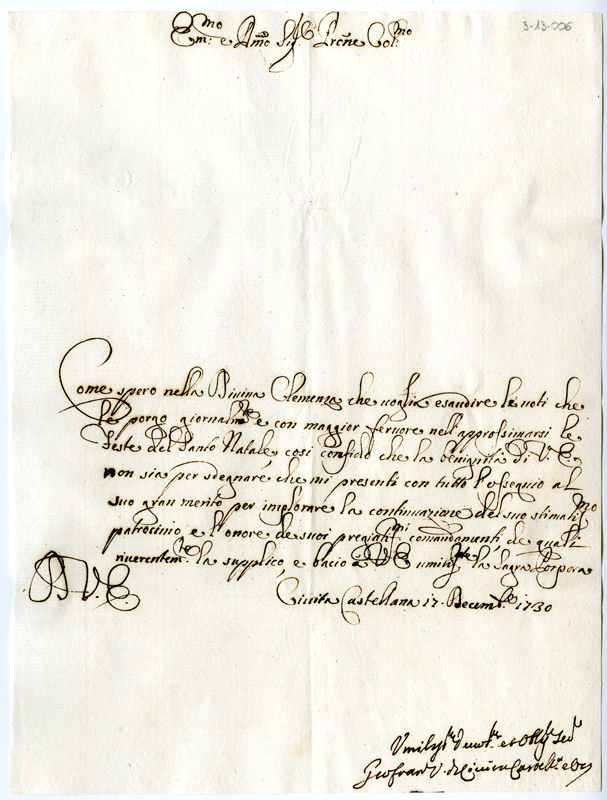 3-13-006
Em:mo e Rmo Sig: Prone Col:mo
Come spero nella Divina Clemenza che voglia esaudire le voti che
le porgo giornalmte e con maggior fervore nell'approssimarsi le
feste del Santo Natale, così confido che la benignità di V. E.
non sia per sdegnare, che mi presenti con tutto l'ossequio al
suo gran merito per implorare la continuazione del suo stimatmo
patrocinio, e l'onore de suoi pregiatmi comandamenti, de quali
riverentemte la supplico, e bacio a V. E. umilte la Sagra Porpora
D. V. E.
Civita Castellana 17. Decembre 1730
Umilmo Devotmo et Obbl Ser
Gio Fran V. di Civita Castella e Orte